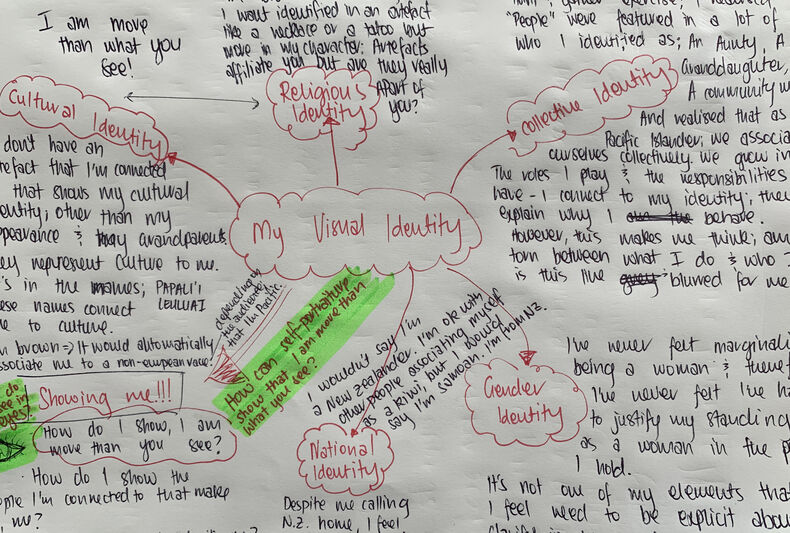 I am more
than what you
see!
I want identified in an artefact
like a necklace or a tatoo but
more in my character. Artefacts
affiliate you but are they really
apart of
you?
"People" were featured in a lot of
who I identified as; An Aunty, A
Granddaughter,
A community
And realised that as
Pacific Islander, we associa
ourselves collectively. We grow in
The roles I play & the responsibilities
have - I connect to my identity; they
explain why I behave.
However, this makes me think; am
torn between what I do & who I
is this line blurred for me
Cultural Identity
Religious
Identity
Collective Identity
My Visual Identity
don't have an
efact that I'm connected
that shows my cultural
entity; other than my
pearance & my grandparents.
ey represent culture to me.
's in the names; PAPALI'I
LEULUAI
ese names connect
e to culture.
m brown => It would automatically
ssociate me to a non-european race!
depending on
the audience
that I'm Pacific.
How can self-portraiture
show that I am more than
what you see?
I wouldn't say I'm
a New Zealander. I'm ote with
other people associating myself
as a kiwi, but I would
say I'm Samoan. I'm from N.Z.
National
Identity
Despite me calling
N.Z. home, I feel
Gender
Identity
I've never felt marginali
being a woman & theref
I've never felt I've ha
to justify my standing
as a woman in the p
I hold.
It's not one of my elements tha
I feel need to be explicit abou
Showing me!!!
do
see in
yes?
How do I show, I am
more than you see?
How do I show the
ople I'm connected to that make
me?